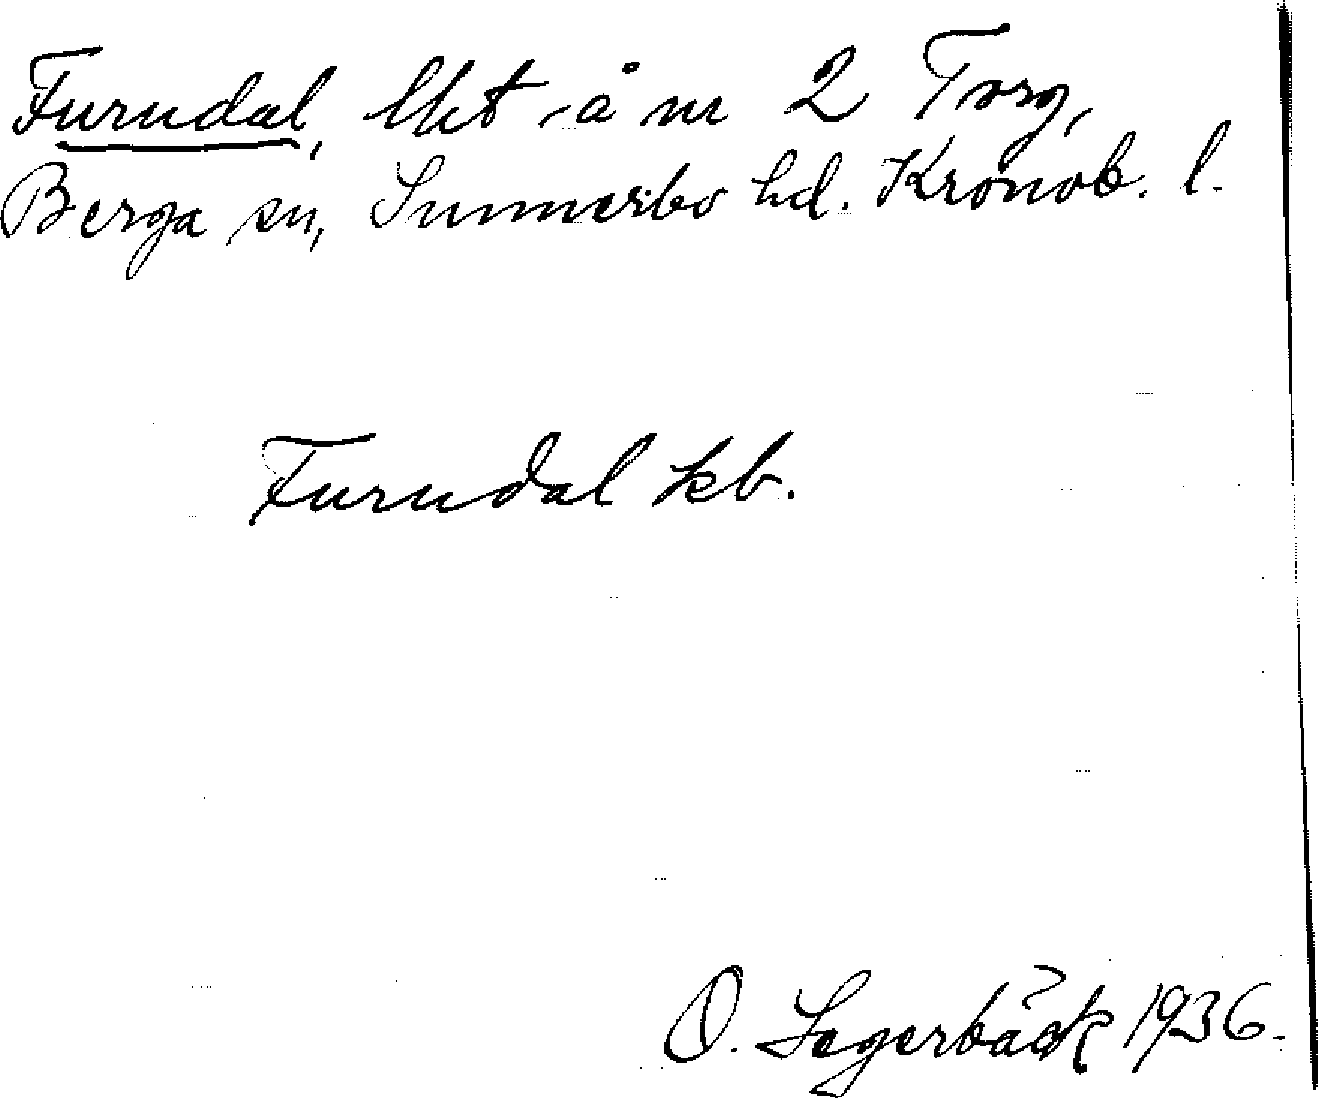 Furudal, lht å nr 2 Torg,
Berga sn, Sunnerbo hd. Kronob. l.
Furudal kb.
O. Segerbäck 1936.